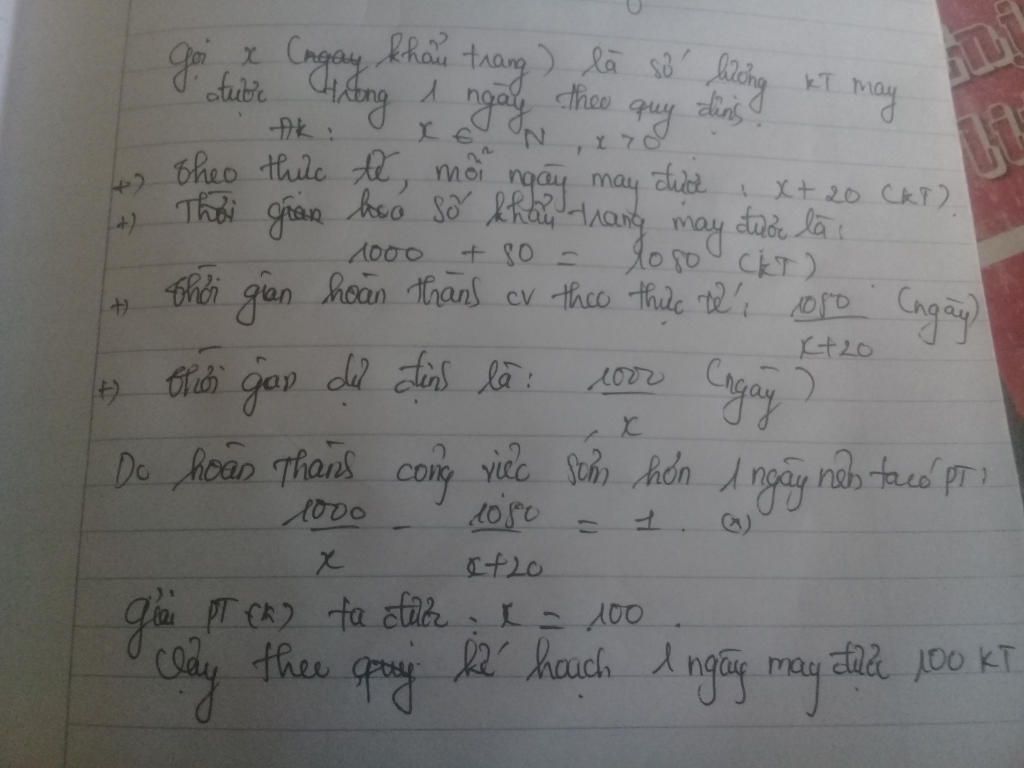 Gọi x (ngay khẩu trang) là số lượng KT may
được trong 1 ngày theo quy định.
ĐK: x ∈ N, x > 0
+) theo thực tế, mỗi ngày may được: x + 20 (KT).
+) Thời gian số khẩu trang may được là:
1000 + 80 = 1080 (KT)
+) thời gian hoàn thành cv theo thực tế: 1080/(x+20) (ngày)
+) thời gian dự định là: 1000/x (ngày)
Do hoàn thành công việc sớm hơn 1 ngày nên ta có PT:
1000/x - 1080/(x+20) = 1. (*)
Giải PT (*) ta được: x = 100.
Vậy theo quy kế hoạch 1 ngày may được 100 KT